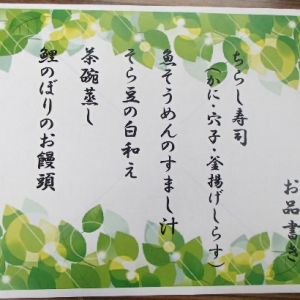 お品書き
ちらし寿司
(かに・穴子・釜揚げしらす)
魚そうめんのすまし汁
そら豆の白和え
茶碗蒸し
鯉のぼりのお饅頭